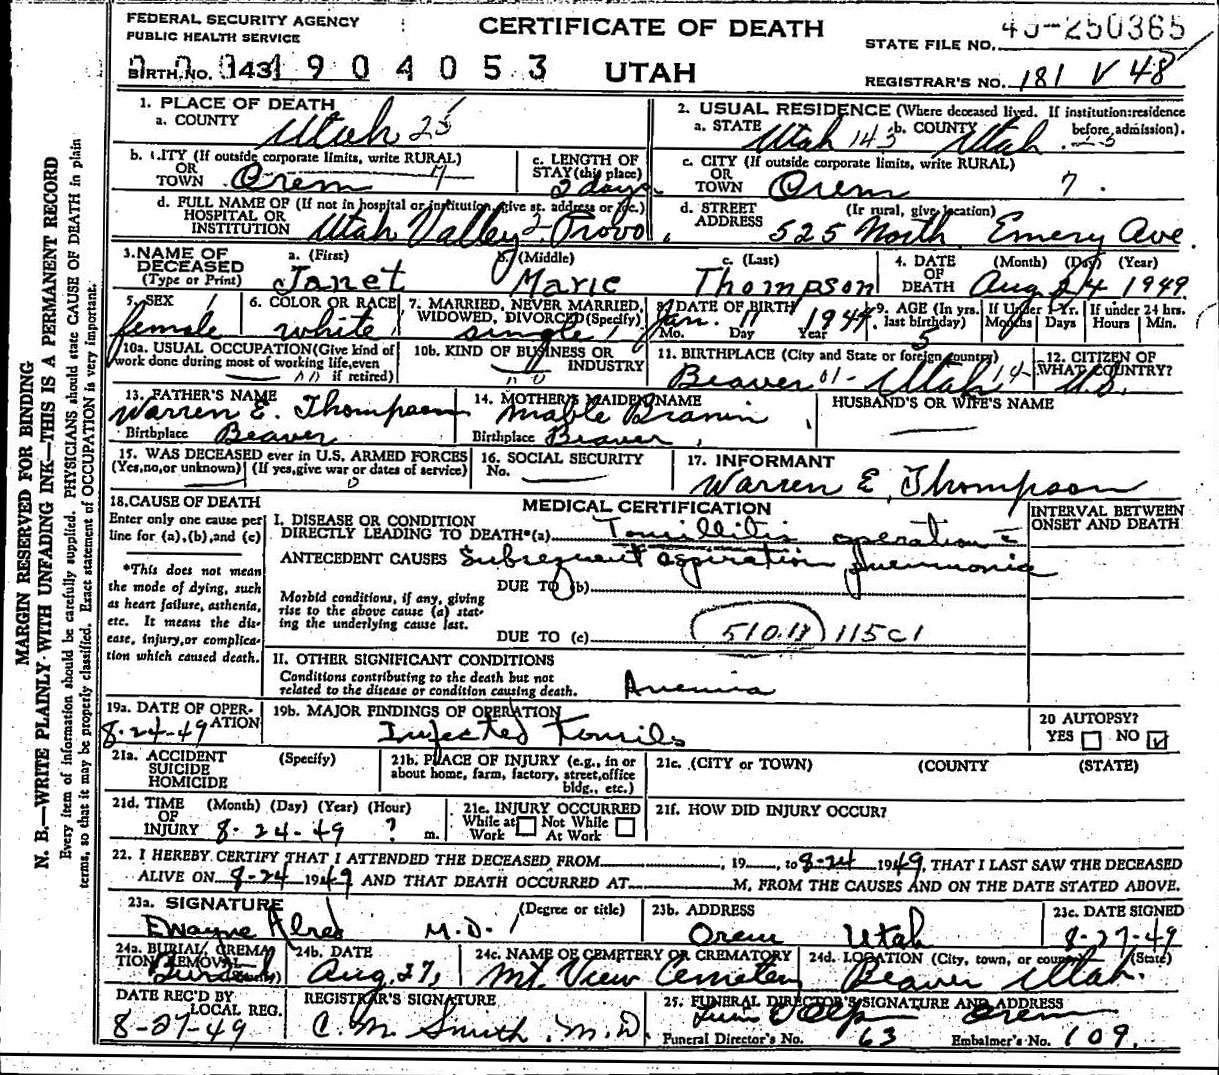 FEDERAL SECURITY AGENCY
PUBLIC HEALTH SERVICE
CERTIFICATE OF DEATH
UTAH
STATE FILE NO. 49-250365
BIRTH NO. 143 1904053
REGISTRAR'S NO. 181 V 48
MARGIN RESERVED FOR BINDING
N. B.—WRITE PLAINLY WITH UNFADING INK—THIS IS A PERMANENT RECORD
Every item of information should be carefully supplied. PHYSICIANS should state CAUSE OF DEATH in plain
terms, so that it may be properly classified. Exact statement of OCCUPATION is very important.
1. PLACE OF DEATH
a. COUNTY Utah 25
2. USUAL RESIDENCE (Where deceased lived. If institution:residence before admission).
a. STATE Utah 143 b. COUNTY Utah 25
b. CITY (If outside corporate limits, write RURAL)
OR TOWN Orem
c. LENGTH OF STAY (this place) 2 days
c. CITY (If outside corporate limits, write RURAL)
OR TOWN Orem 7.
d. FULL NAME OF (If not in hospital or institution, give st. address or loc.)
HOSPITAL OR INSTITUTION Utah Valley 2 Provo,
d. STREET ADDRESS (If rural, give location)
525 North Emery Ave.
3. NAME OF DECEASED (Type or Print)
a. (First) Janet b. (Middle) Marie c. (Last) Thompson
4. DATE OF DEATH (Month) (Day) (Year) Aug 24 1949
5. SEX female 1
6. COLOR OR RACE white 1
7. MARRIED, NEVER MARRIED, WIDOWED, DIVORCED (Specify) single 1
8. DATE OF BIRTH Jan. 11 1944
Mo. Day Year
9. AGE (In yrs. last birthday) 5
If Under 1 Yr. Months Days
If under 24 hrs. Hours Min.
10a. USUAL OCCUPATION (Give kind of work done during most of working life, even if retired)
10b. KIND OF BUSINESS OR INDUSTRY
11. BIRTHPLACE (City and State or foreign country) Beaver 01 - Utah 14
12. CITIZEN OF WHAT COUNTRY? U.S.
13. FATHER'S NAME Warren E. Thompson
Birthplace Beaver
14. MOTHER'S MAIDEN NAME Mable
Birthplace Beaver,
HUSBAND'S OR WIFE'S NAME
15. WAS DECEASED ever in U.S. ARMED FORCES
(Yes, no, or unknown) (If yes, give war or dates of service) 0
16. SOCIAL SECURITY No.
17. INFORMANT
Warren E. Thompson
18. CAUSE OF DEATH
Enter only one cause per line for (a), (b), and (c)
*This does not mean the mode of dying, such as heart failure, asthenia, etc. It means the disease, injury, or complication which caused death.
MEDICAL CERTIFICATION
INTERVAL BETWEEN ONSET AND DEATH
I. DISEASE OR CONDITION
DIRECTLY LEADING TO DEATH*(a) Tonsillitis operation -
ANTECEDENT CAUSES Subsequent aspiration pneumonia
DUE TO (b)
Morbid conditions, if any, giving rise to the above cause (a) stating the underlying cause last.
DUE TO (c) 510.1 115c1
II. OTHER SIGNIFICANT CONDITIONS
Conditions contributing to the death but not related to the disease or condition causing death. Anemia
19a. DATE OF OPERATION 8-24-49
19b. MAJOR FINDINGS OF OPERATION
Infected Tonsils
20 AUTOPSY?
YES NO
21a. ACCIDENT SUICIDE HOMICIDE (Specify)
21b. PLACE OF INJURY (e.g., in or about home, farm, factory, street, office bldg., etc.)
21c. (CITY OR TOWN) (COUNTY) (STATE)
21d. TIME OF INJURY (Month) (Day) (Year) (Hour)
8-24-49 ? m.
21e. INJURY OCCURRED
While at Work Not While At Work
21f. HOW DID INJURY OCCUR?
22. I HEREBY CERTIFY THAT I ATTENDED THE DECEASED FROM 19 , to 8-24 1949, THAT I LAST SAW THE DECEASED
ALIVE ON 8-24 1949 AND THAT DEATH OCCURRED AT M, FROM THE CAUSES AND ON THE DATE STATED ABOVE.
23a. SIGNATURE (Degree or title)
M.D.
23b. ADDRESS
Orem Utah
23c. DATE SIGNED
8-27-49
24a. BURIAL, CREMATION, REMOVAL
Burial
24b. DATE
Aug. 27,
24c. NAME OF CEMETERY OR CREMATORY
Mt. View Cemetery
24d. LOCATION (City, town, or county) (State)
Beaver Utah.
DATE REC'D BY LOCAL REG.
8-27-49
REGISTRAR'S SIGNATURE
C. M. Smith. M.D.
25. FUNERAL DIRECTOR'S SIGNATURE AND ADDRESS
Orem
Funeral Director's No. 63 Embalmer's No. 109.